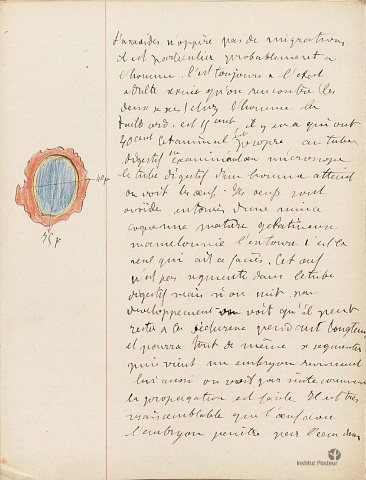 d'ascarides n'opère pas de migrations
il est particulier probablement a
l'homme. C'est toujours a l'état
adulte qu'on rencontre les
deux sexes chez l'homme la
est 15 cent il y en a qui ont
40 cent Et animal est propre au tube
digestif en examinant au microscope
le tube digestif d'un homme atteint
on voit les œufs. Ces œufs sont
ovoïde entourés d'une mince
coque une matière gélatineuse
mamelonnée l'entoure c'est la
seul qui ait a facies. Cet œuf
n'est pas segmenté dans le tube
digestif mais si on suit son
développement on voit qu'il peut
rester a la sécheresse pendant longtemps
et pourra tout de même se segmenter
puis vient un embryon
lui aussi on voit par suite comment
la propagation est facile. Il est très
vraisemblable que l'œuf ou
l'embryon pénètre par l'eau dans
45 µ
Institut Pasteur